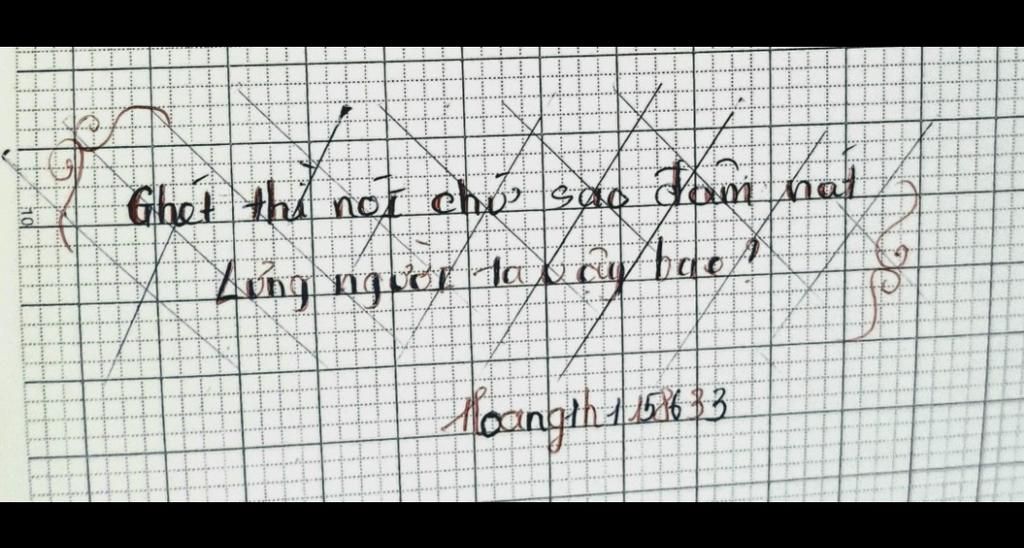 Ghét thì nói chứ sao đâm hai
Lưng người ta vậy bao?
Hoangth1158633